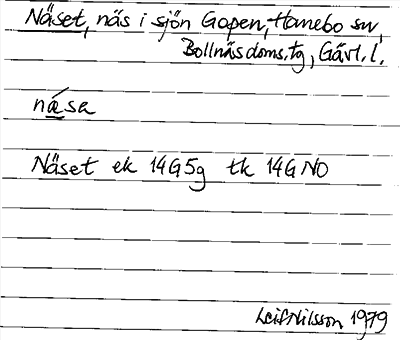 Näset, näs i sjön Gopen, Hanebo sn,
Bollnäs doms.tg, Gävl. l.
nása
Näset ek 14G5g tk 14GNO
Leif Nilsson 1979